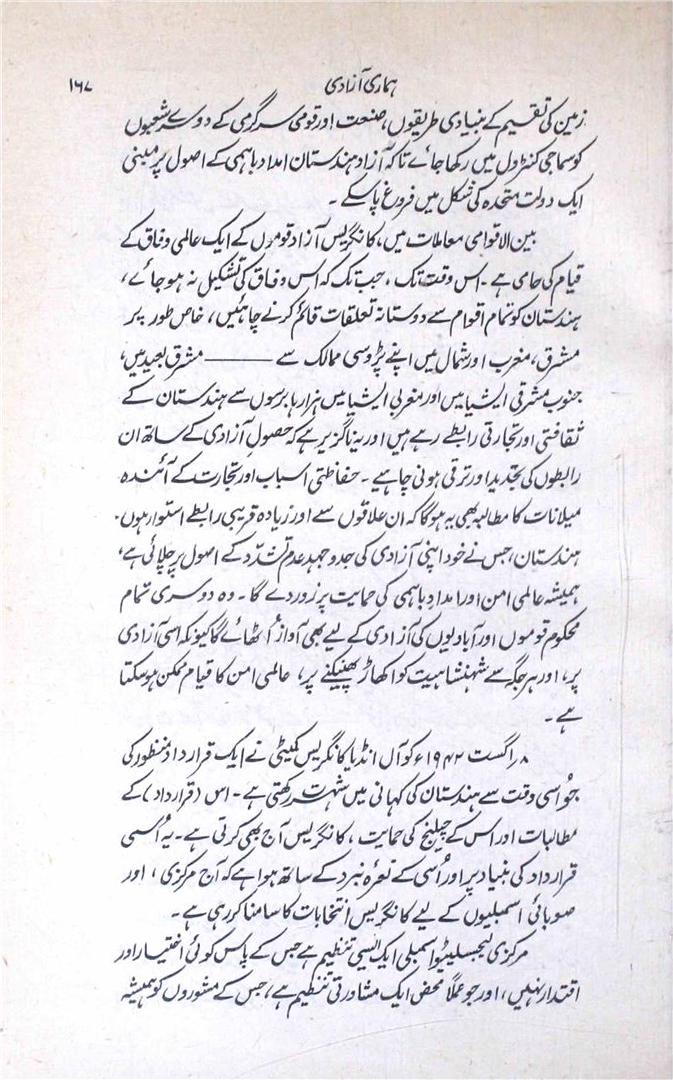 ہماری آزادی ۱۶۷
زمین کی تقسیم کے بنیادی طریقوں، صنعت اور قومی سرگرمی کے دوسرے شعبوں
کو سماجی کنٹرول میں رکھا جائے تاکہ آزاد ہندستان امداد باہمی کے اصول پر مبنی
ایک دولت متحدہ کی شکل میں فروغ پا سکے۔
بین الاقوامی معاملات میں، کانگریس آزاد قوموں کے ایک عالمی وفاق کے
قیام کی حامی ہے۔ اس وقت تک، جب تک کہ اس وفاق کی تشکیل نہ ہو جائے،
ہندستان کو تمام اقوام سے دوستانہ تعلقات قائم کرنے چاہئیں، خاص طور پر
مشرق، مغرب اور شمال میں اپنے پڑوسی ممالک سے ——— مشرق بعید میں،
جنوب مشرقی ایشیا میں اور مغربی ایشیا میں ہزارہا برسوں سے ہندستان کے
ثقافتی اور تجارتی رابطے رہے ہیں اور یہ ناگزیر ہے کہ حصولِ آزادی کے ساتھ ان
رابطوں کی تجدید اور ترقی ہونی چاہیے۔ حفاظتی اسباب اور تجارت کے آئندہ
میلانات کا مطالبہ بھی یہ ہو گا کہ ان علاقوں سے اور زیادہ قریبی رابطے استوار ہوں۔
ہندستان، جس نے خود اپنی آزادی کی جدوجہد عدم تشدّد کے اصول پر چلائی ہے،
ہمیشہ عالمی امن اور امدادِ باہمی کی حمایت پر زور دے گا۔ وہ دوسری تمام
محکوم قوموں اور آبادیوں کی آزادی کے لیے بھی آواز اُٹھائے گا کیونکہ اسی آزادی
پر، اور ہر جگہ سے شہنشاہیت کو اکھاڑ پھینکنے پر، عالمی امن کا قیام ممکن ہو سکتا
ہے۔
۸ر اگست ۱۹۴۲ء کو آل انڈیا کانگریس کمیٹی نے ایک قرارداد منظور کی
جو اسی وقت سے ہندستان کی کہانی میں شہرت رکھتی ہے۔ اس (قرارداد) کے
مطالبات اور اس کے چیلنج کی حمایت، کانگریس آج بھی کرتی ہے۔ یہ اُسی
قرارداد کی بنیاد پر اور اُسی کے نعرۂ نبرد کے ساتھ ہوا ہے کہ آج مرکزی، اور
صوبائی اسمبلیوں کے لیے کانگریس انتخابات کا سامنا کر رہی ہے۔
مرکزی لیجسلیٹیو اسمبلی ایک ایسی تنظیم ہے جس کے پاس کوئی اختیار اور
اقتدار نہیں، اور جو عملاً محض ایک مشاورتی تنظیم ہے، جس کے مشوروں کو ہمیشہ